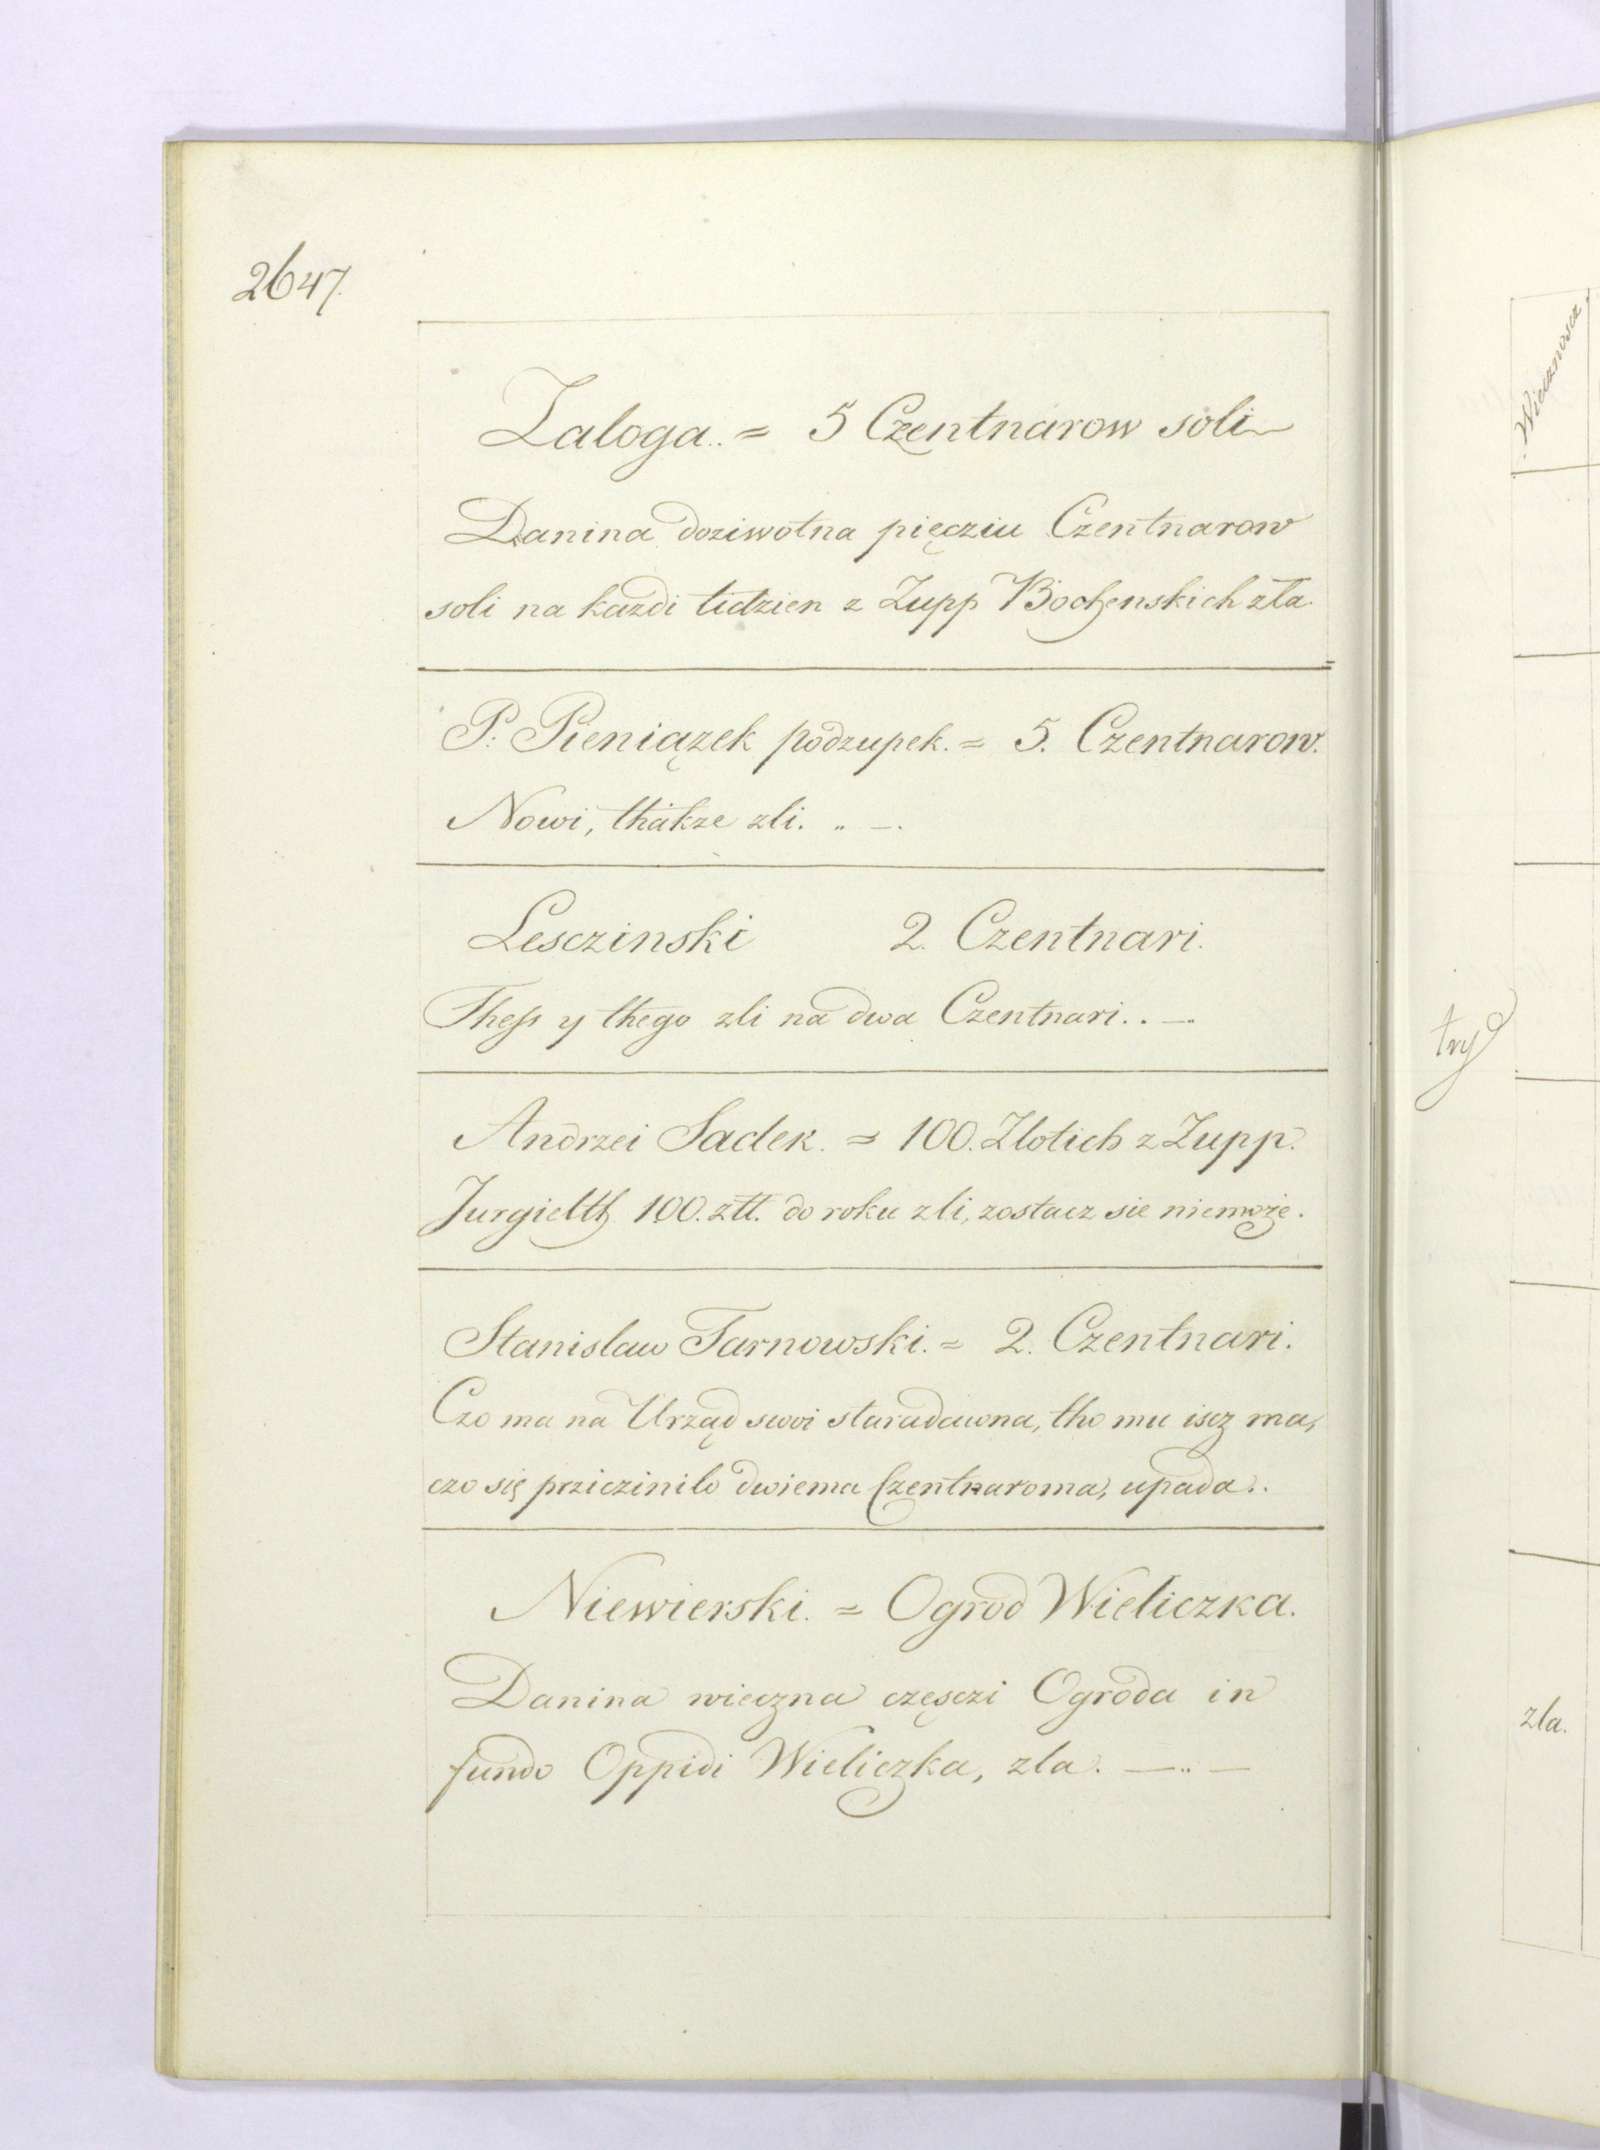 2647.
Zaloga.. = 5 Czentnarow soli
Danina doziwotna pięcziu Czentnarow
soli na kazdi tidzien z Zupp Bochenskich zła.
P: Pieniązek podzupek. = 5. Czentnarow.
Nowi, thakze zli. .. —.
Lesczinski 2. Czentnari.
Thess y thego zli na dwa Czentnari.. —.
Andrzei Sadek. = 100. Zlotich z Zupp.
Jurgielth 100. złł. do roku zli, zostacz sie niemoże.
Stanislaw Tarnowski. = 2. Czentnari.
Czo ma na Urząd swoi staradawna, tho mu iscz ma,
czo się prziczinilo dwiema Czentnaroma, upada..
Niewierski. = Ogrod Wieliczka.
Danina wieczna częsczi Ogroda in
fundo Oppidi Wieliczka, zla. —..—
Wiecznoscz
try
zla.